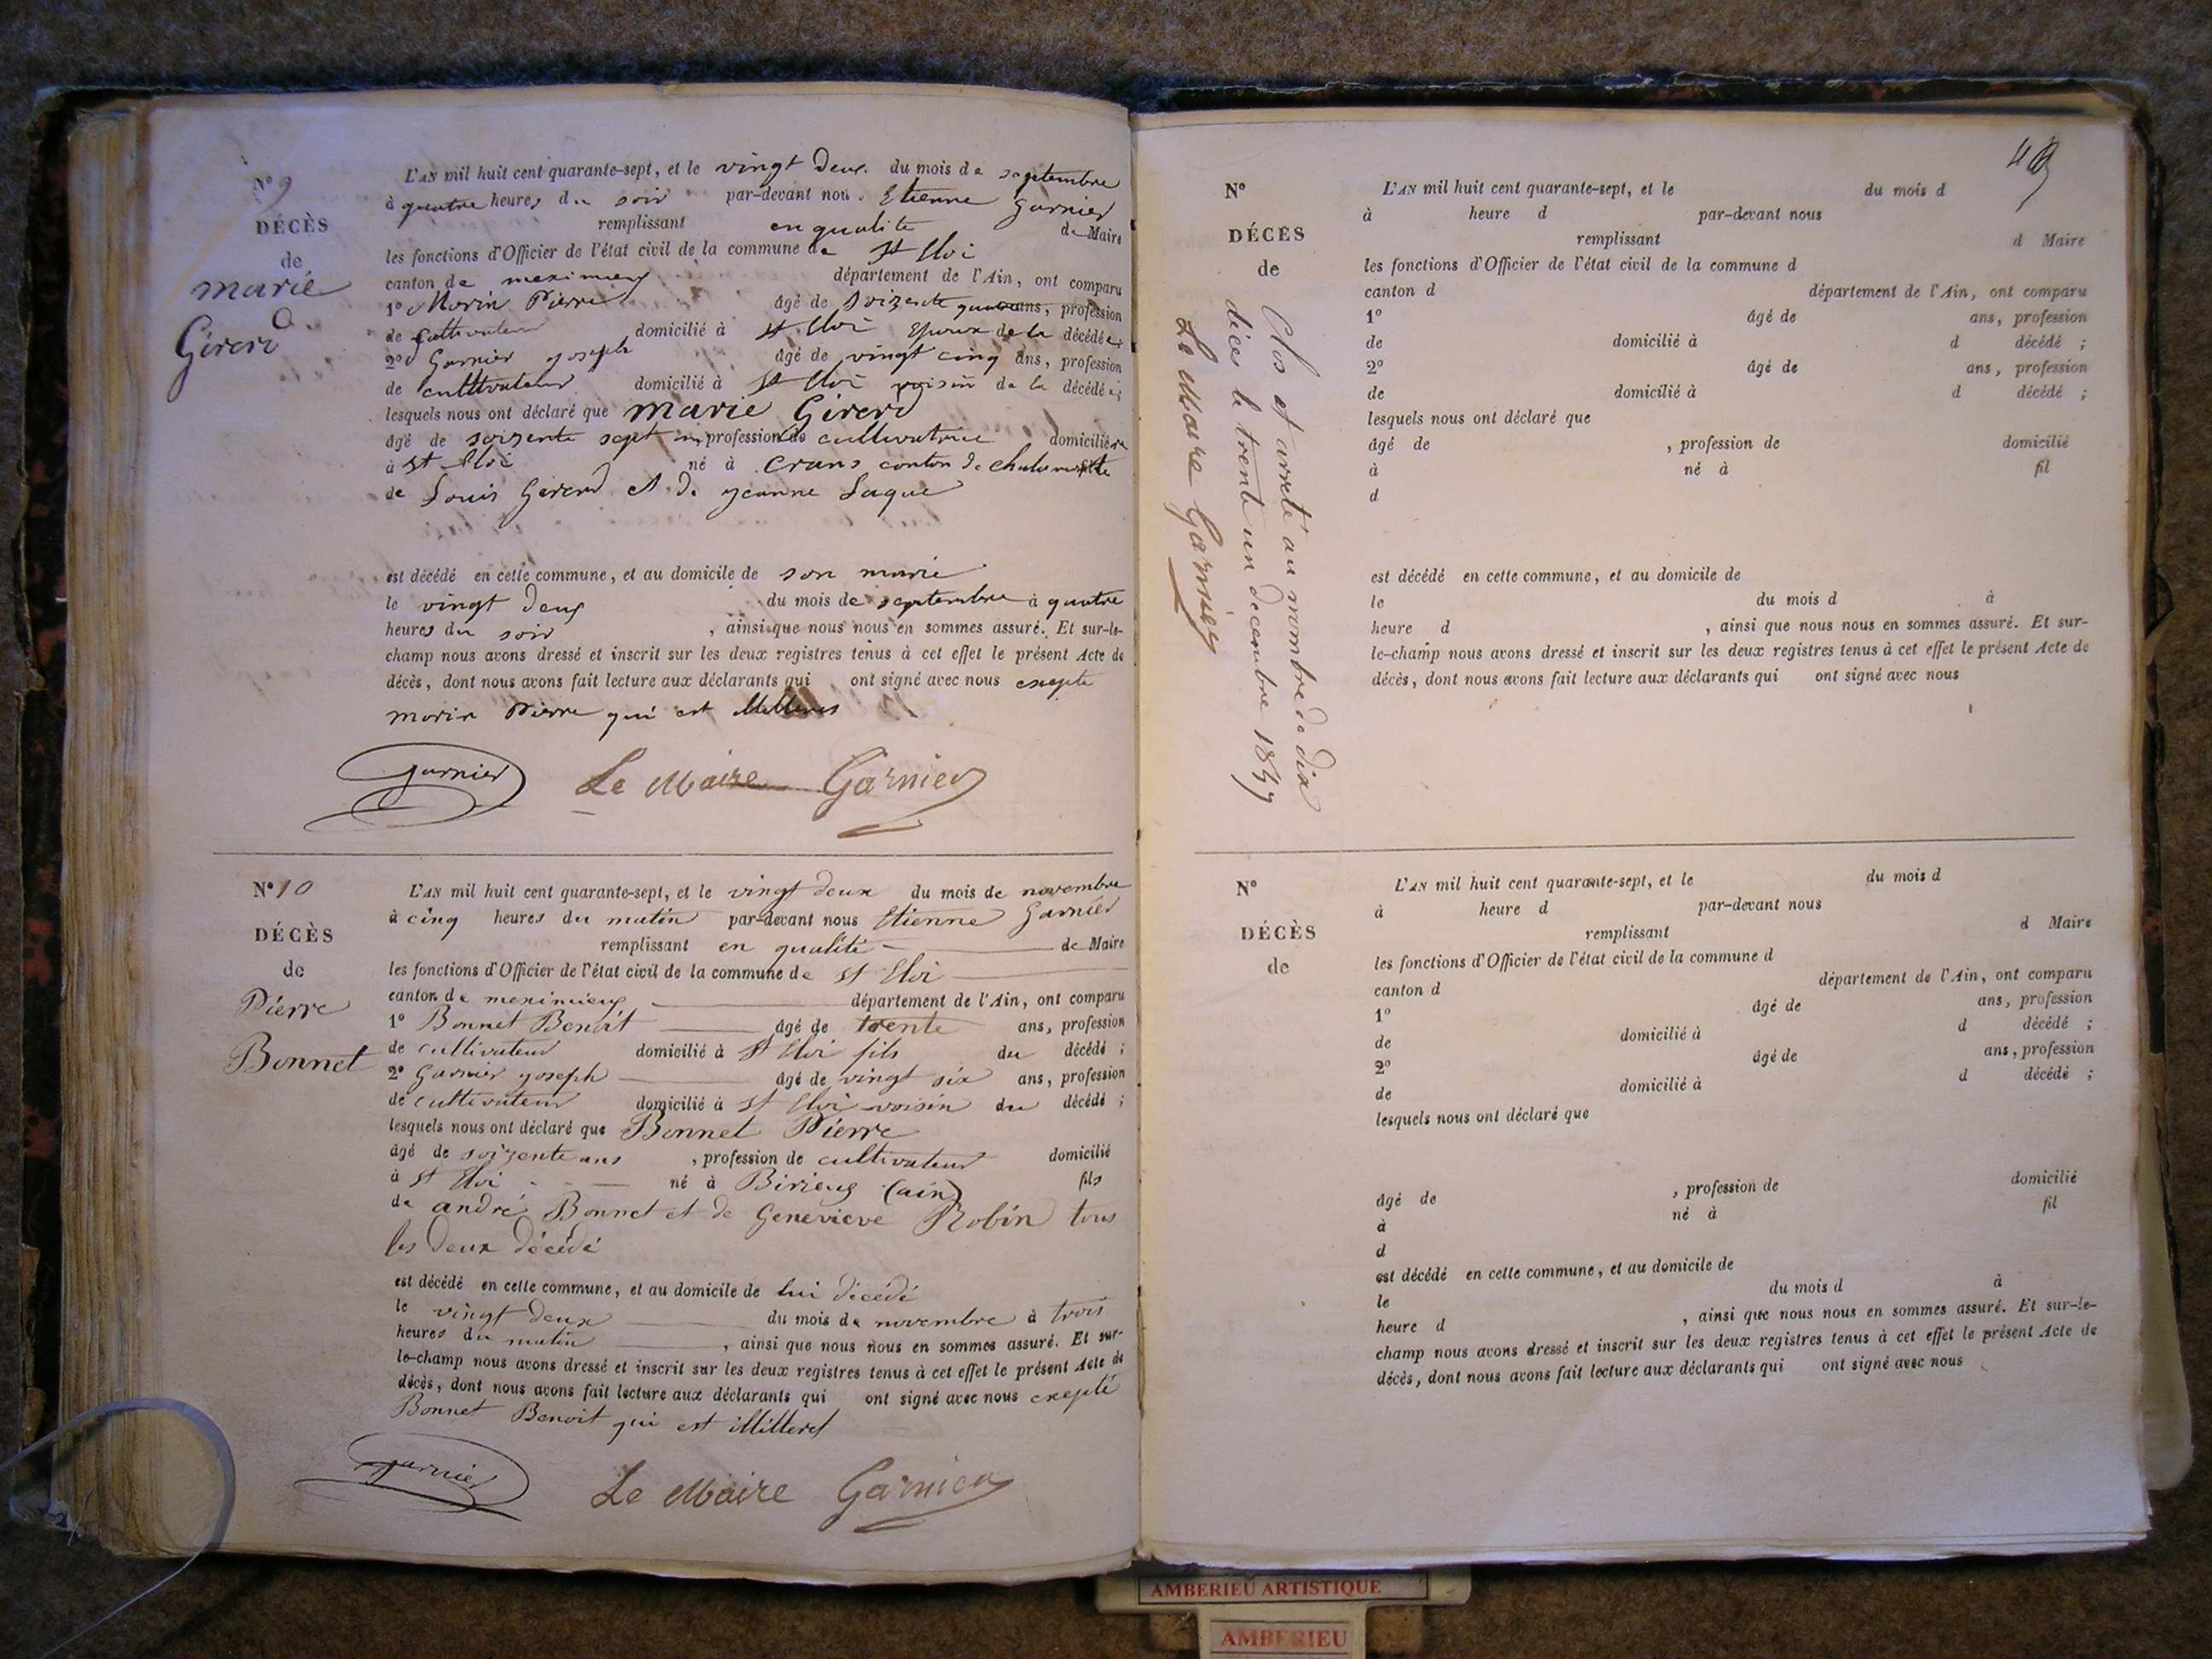 N° 9
DÉCÈS
de
marie
Girerd
L'AN mil huit cent quarante-sept, et le vingt deux du mois de septembre
à quatre heures du soir par-devant nous Etienne Garnier
remplissant en qualité de Maire
les fonctions d'Officier de l'état civil de la commune de St Eloi
canton de meximieux département de l'Ain, ont comparu
1° Morin Pierre âgé de soizente ans, profession
de Cultivateur domicilié à St Eloi Epoux de la décédée
2° Garnier joseph âgé de vingt cinq ans, profession
de cultivateur domicilié à St Eloi voisin de la décédée;
lesquels nous ont déclaré que marie Girerd
âgé de soizente sept ans profession de cultivatrice domiciliée
à St Eloi né à Crans conton de chalamont fille
de Louis Girerd et de jeanne Laque
est décédé en cette commune, et au domicile de son marie
le vingt deux du mois de septembre à quatre
heures du soir , ainsi que nous nous en sommes assuré. Et sur-le-
champ nous avons dressé et inscrit sur les deux registres tenus à cet effet le présent Acte de
décès, dont nous avons fait lecture aux déclarants qui ont signé avec nous exepte
morin Pierre qui est
garnier Le Maire Garnier
N° 10
DÉCÈS
de
Pierre
Bonnet
L'AN mil huit cent quarante-sept, et le vingt deux du mois de novembre
à cinq heures du matin par-devant nous Etienne Garnier
remplissant en qualité de Maire
les fonctions d'Officier de l'état civil de la commune de St Eloi
canton de meximieux département de l'Ain, ont comparu
1° Bonnet Benoit âgé de trente ans, profession
de cultivateur domicilié à St Eloi fils du décédé ;
2° Garnier joseph âgé de vingt six ans, profession
de cultivateur domicilié à St Eloi voisin du décédé ;
lesquels nous ont déclaré que Bonnet Pierre
âgé de soizente ans , profession de cultivateur domicilié
à St Eloi né à Birieux (ain) fils
de andré Bonnet et de Genevieve Robin tous
les deux décédé
est décédé en cette commune, et au domicile de lui décédé
le vingt deux du mois de novembre à trois
heures du matin , ainsi que nous nous en sommes assuré. Et sur-
le-champ nous avons dressé et inscrit sur les deux registres tenus à cet effet le présent Acte de
décès, dont nous avons fait lecture aux déclarants qui ont signé avec nous exepté
Bonnet Benoit qui est illitteret
garnier Le Maire Garnier
Clos et arreté au nombre de dix
déces le trente un decembre 1847
Le Maire Garnier
N°
DÉCÈS
de
L'AN mil huit cent quarante-sept, et le du mois d
à heure d par-devant nous
remplissant d Maire
les fonctions d'Officier de l'état civil de la commune d
canton d département de l'Ain, ont comparu
1° âgé de ans, profession
de domicilié à d décédé ;
2° âgé de ans, profession
de domicilié à d décédé ;
lesquels nous ont déclaré que
âgé de , profession de domicilié
à né à fil
d
est décédé en cette commune, et au domicile de
le du mois d à
heure d , ainsi que nous nous en sommes assuré. Et sur-
le-champ nous avons dressé et inscrit sur les deux registres tenus à cet effet le présent Acte de
décès, dont nous avons fait lecture aux déclarants qui ont signé avec nous
N°
DÉCÈS
de
L'AN mil huit cent quarante-sept, et le du mois d
à heure d par-devant nous
remplissant d Maire
les fonctions d'Officier de l'état civil de la commune d
canton d département de l'Ain, ont comparu
1° âgé de ans, profession
de domicilié à d décédé ;
2° âgé de ans, profession
de domicilié à d décédé ;
lesquels nous ont déclaré que
âgé de , profession de domicilié
à né à fil
d
est décédé en cette commune, et au domicile de
le du mois d à
heure d , ainsi que nous nous en sommes assuré. Et sur-le-
champ nous avons dressé et inscrit sur les deux registres tenus à cet effet le présent Acte de
décès, dont nous avons fait lecture aux déclarants qui ont signé avec nous
AMBERIEU ARTISTIQUE
AMBERIEU